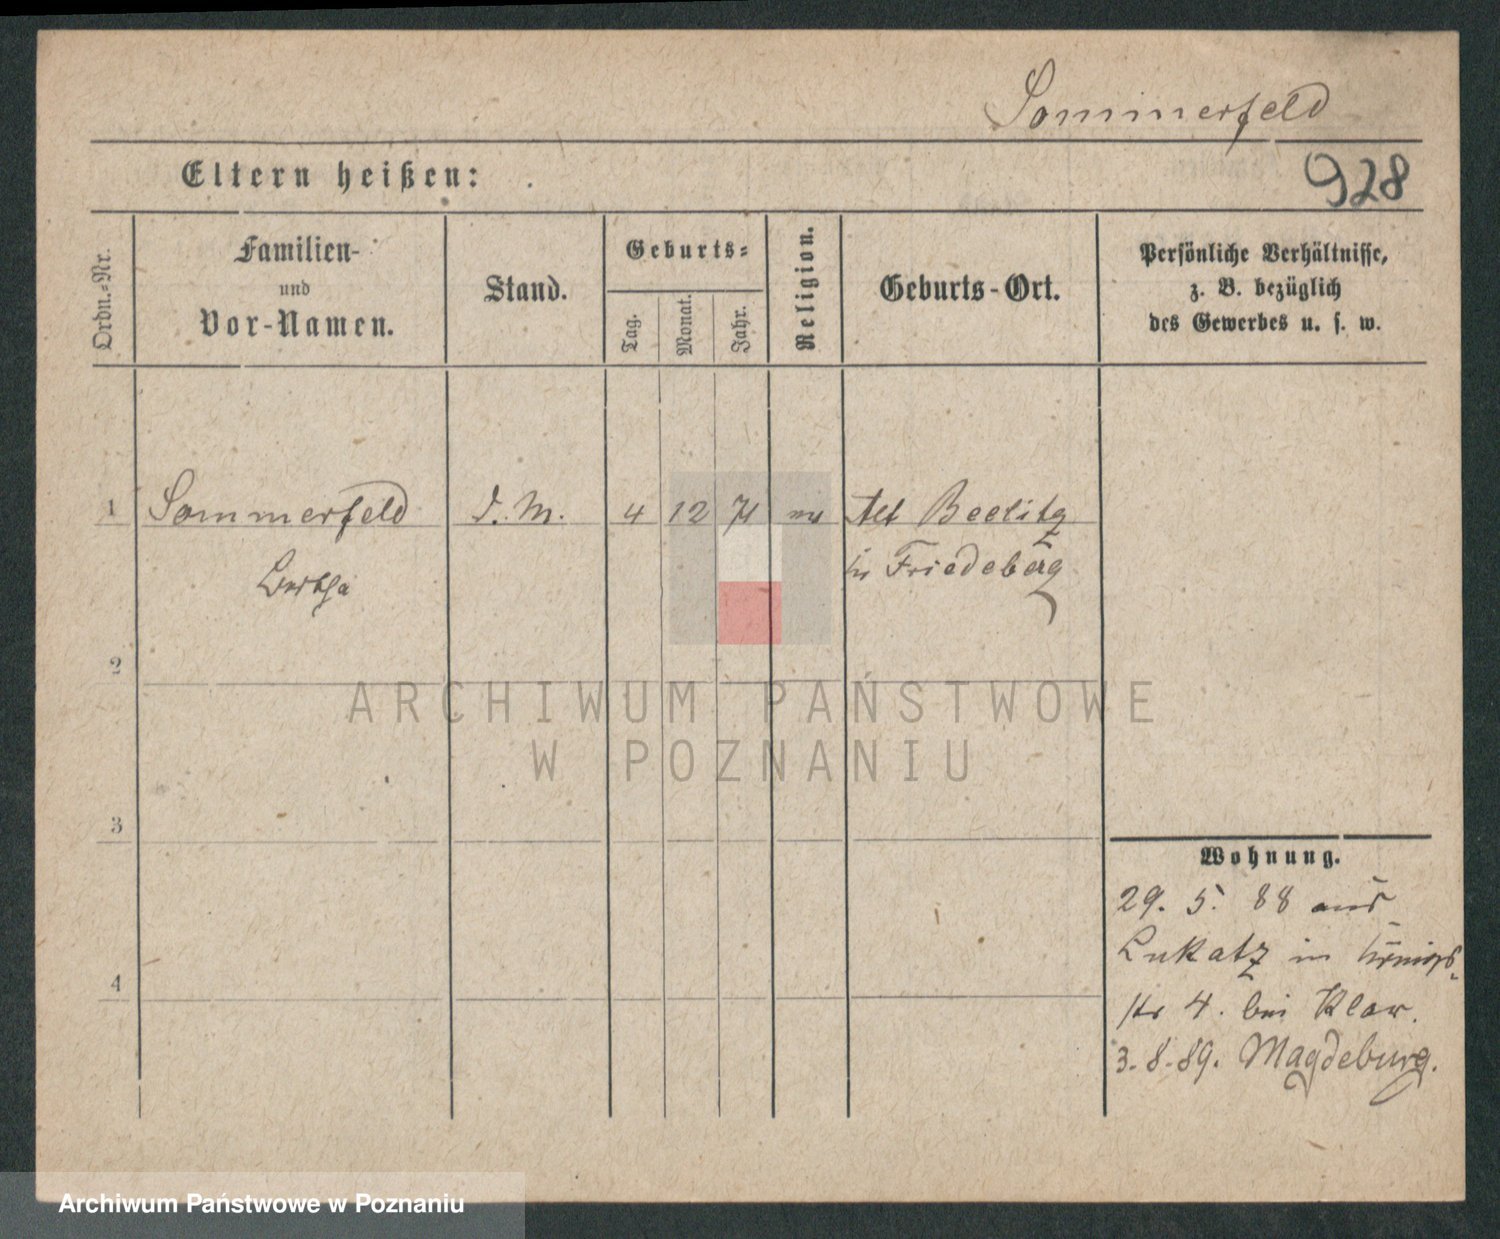 Sommerfeld
928
Eltern heißen:
Ordn.-Nr.
Familien-
und
Vor-Namen.
Stand.
Geburts-
Tag.
Monat.
Jahr.
Religion.
Geburts-Ort.
Persönliche Verhältnisse,
z. B. bezüglich
des Gewerbes u. s. w.
1 Sommerfeld D. M. 4 12 71 Alt Beelitz
Bertha in Friedeberg
2
3
4
Wohnung.
29. 5. 88 aus
Lukatz in Königs-
str 4. bei Klar.
3. 8. 89. Magdeburg.
ARCHIWUM PAŃSTWOWE
W POZNANIU
Archiwum Państwowe w Poznaniu